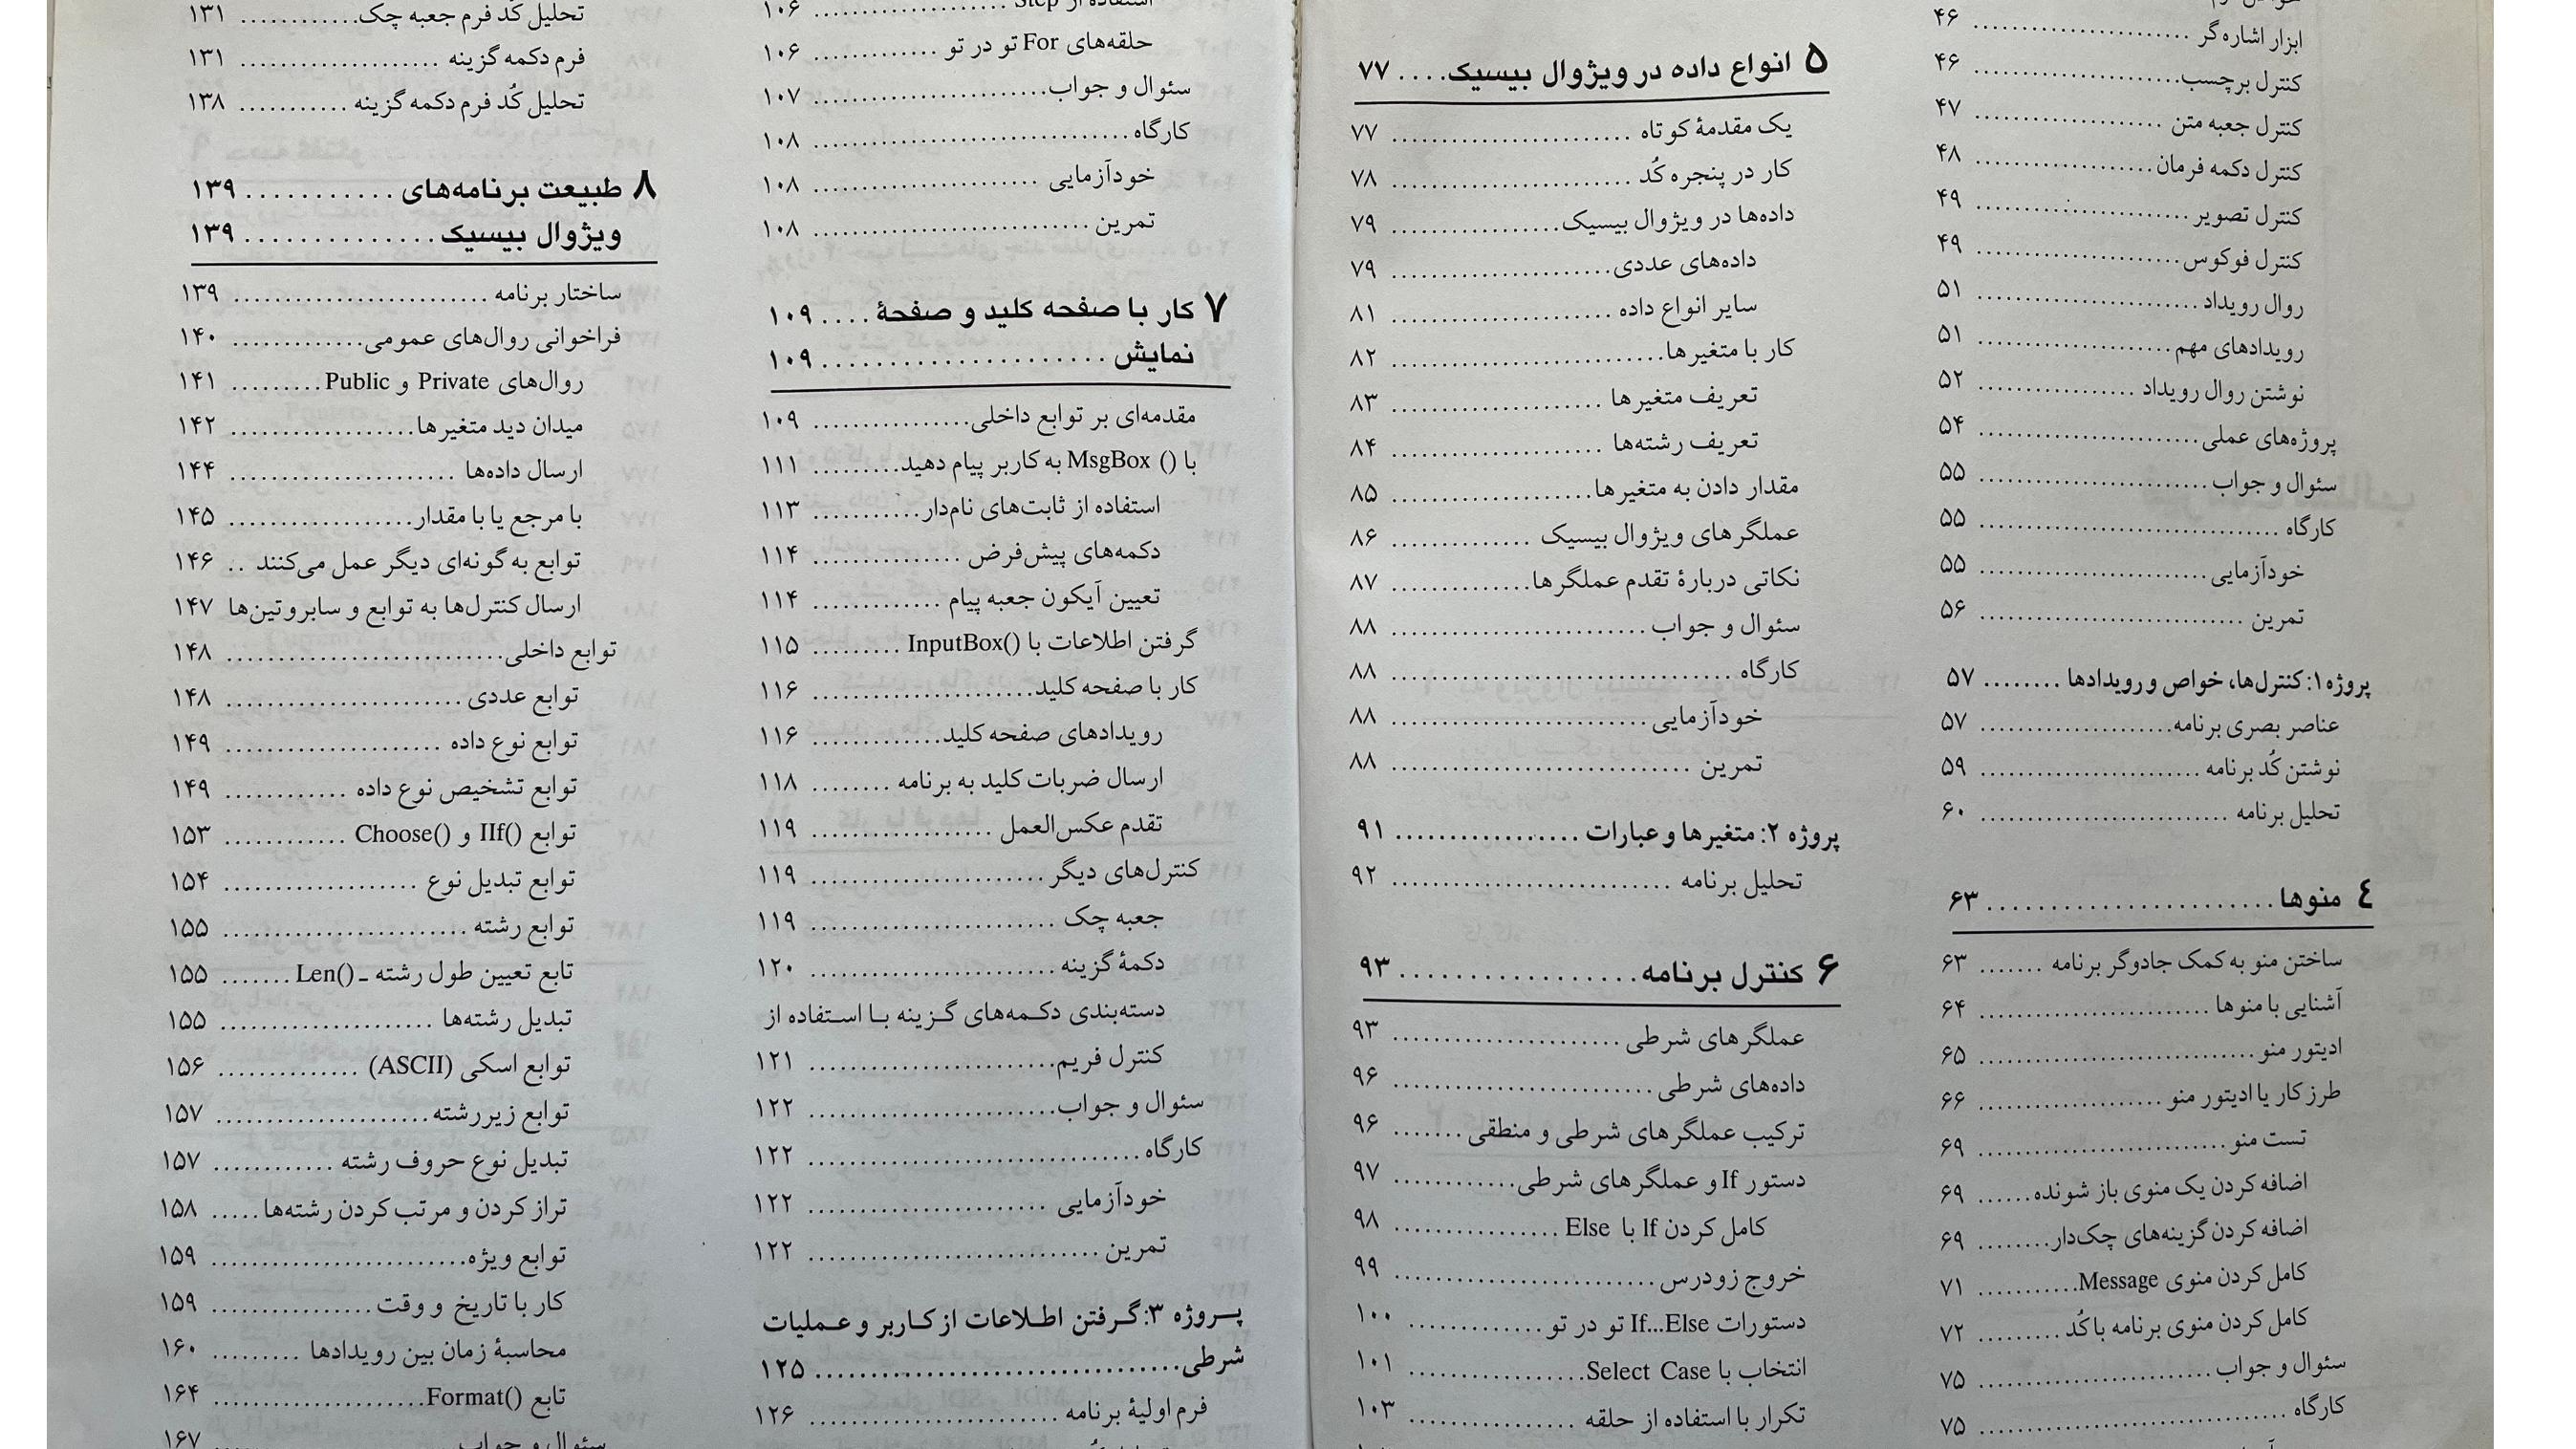 ابزار اشاره‌گر ............ ۴۶
کنترل برچسب ............ ۴۶
کنترل جعبه متن ............ ۴۷
کنترل دکمه فرمان ............ ۴۸
کنترل تصویر ............ ۴۹
کنترل فوکوس ............ ۴۹
روال رویداد ............ ۵۱
رویدادهای مهم ............ ۵۱
نوشتن روال رویداد ............ ۵۲
پروژه‌های عملی ............ ۵۴
سئوال و جواب ............ ۵۵
کارگاه ............ ۵۵
خودآزمایی ............ ۵۵
تمرین ............ ۵۶
پروژه ۱: کنترل‌ها، خواص و رویدادها ........ ۵۷
عناصر بصری برنامه ............ ۵۷
نوشتن کُد برنامه ............ ۵۹
تحلیل برنامه ............ ۶۰
٤ منوها ............ ۶۳
ساختن منو به کمک جادوگر برنامه ....... ۶۳
آشنایی با منوها ............ ۶۴
ادیتور منو ............ ۶۵
طرز کار یا ادیتور منو ............ ۶۶
تست منو ............ ۶۹
اضافه کردن یک منوی باز شونده ...... ۶۹
اضافه کردن گزینه‌های چک‌دار ........ ۶۹
کامل کردن منوی Message ............ ۷۱
کامل کردن منوی برنامه با کُد ......... ۷۲
سئوال و جواب ............ ۷۵
کارگاه ............ ۷۵
۵ انواع داده در ویژوال بیسیک .... ۷۷
یک مقدمهٔ کوتاه ............ ۷۷
کار در پنجره کُد ............ ۷۸
داده‌ها در ویژوال بیسیک ............ ۷۹
داده‌های عددی ............ ۷۹
سایر انواع داده ............ ۸۱
کار با متغیرها ............ ۸۲
تعریف متغیرها ............ ۸۳
تعریف رشته‌ها ............ ۸۴
مقدار دادن به متغیرها ............ ۸۵
عملگرهای ویژوال بیسیک ............ ۸۶
نکاتی دربارهٔ تقدم عملگرها ............ ۸۷
سئوال و جواب ............ ۸۸
کارگاه ............ ۸۸
خودآزمایی ............ ۸۸
تمرین ............ ۸۸
پروژه ۲: متغیرها و عبارات ............ ۹۱
تحلیل برنامه ............ ۹۲
۶ کنترل برنامه ............ ۹۳
عملگرهای شرطی ............ ۹۳
داده‌های شرطی ............ ۹۶
ترکیب عملگرهای شرطی و منطقی ....... ۹۶
دستور If و عملگرهای شرطی ............ ۹۷
کامل کردن If با Else ............ ۹۸
خروج زودرس ............ ۹۹
دستورات If...Else تو در تو ............ ۱۰۰
انتخاب با Select Case ............ ۱۰۱
تکرار با استفاده از حلقه ............ ۱۰۳
استفاده از Step ............ ۱۰۶
حلقه‌های For تو در تو ............ ۱۰۶
سئوال و جواب ............ ۱۰۷
کارگاه ............ ۱۰۸
خودآزمایی ............ ۱۰۸
تمرین ............ ۱۰۸
۷ کار با صفحه کلید و صفحهٔ .... ۱۰۹
نمایش ............ ۱۰۹
مقدمه‌ای بر توابع داخلی ............ ۱۰۹
با MsgBox () به کاربر پیام دهید ......... ۱۱۱
استفاده از ثابت‌های نام‌دار ............ ۱۱۳
دکمه‌های پیش‌فرض ............ ۱۱۴
تعیین آیکون جعبه پیام ............ ۱۱۴
گرفتن اطلاعات با InputBox() ......... ۱۱۵
کار با صفحه کلید ............ ۱۱۶
رویدادهای صفحه کلید ............ ۱۱۶
ارسال ضربات کلید به برنامه ........ ۱۱۸
تقدم عکس‌العمل ............ ۱۱۹
کنترل‌های دیگر ............ ۱۱۹
جعبه چک ............ ۱۱۹
دکمهٔ گزینه ............ ۱۲۰
دسته‌بندی دکمه‌های گزینه با استفاده از
کنترل فریم ............ ۱۲۱
سئوال و جواب ............ ۱۲۲
کارگاه ............ ۱۲۲
خودآزمایی ............ ۱۲۲
تمرین ............ ۱۲۲
پروژه ۳: گرفتن اطلاعات از کاربر و عملیات
شرطی ............ ۱۲۵
فرم اولیهٔ برنامه ............ ۱۲۶
تحلیل کُد فرم جعبه چک ............ ۱۳۱
فرم دکمه گزینه ............ ۱۳۱
تحلیل کُد فرم دکمه گزینه ........... ۱۳۸
۸ طبیعت برنامه‌های ............ ۱۳۹
ویژوال بیسیک ............ ۱۳۹
ساختار برنامه ............ ۱۳۹
فراخوانی روال‌های عمومی ............ ۱۴۰
روال‌های Private و Public ......... ۱۴۱
میدان دید متغیرها ............ ۱۴۲
ارسال داده‌ها ............ ۱۴۴
با مرجع یا با مقدار ............ ۱۴۵
توابع به گونه‌ای دیگر عمل می‌کنند .. ۱۴۶
ارسال کنترل‌ها به توابع و سابروتین‌ها ۱۴۷
توابع داخلی ............ ۱۴۸
توابع عددی ............ ۱۴۸
توابع نوع داده ............ ۱۴۹
توابع تشخیص نوع داده ............ ۱۴۹
توابع IIf() و Choose() ............ ۱۵۳
توابع تبدیل نوع ............ ۱۵۴
توابع رشته ............ ۱۵۵
تابع تعیین طول رشته ـ Len() ....... ۱۵۵
تبدیل رشته‌ها ............ ۱۵۵
توابع اسکی (ASCII) ............ ۱۵۶
توابع زیررشته ............ ۱۵۷
تبدیل نوع حروف رشته ............ ۱۵۷
تراز کردن و مرتب کردن رشته‌ها ..... ۱۵۸
توابع ویژه ............ ۱۵۹
کار با تاریخ و وقت ............ ۱۵۹
محاسبهٔ زمان بین رویدادها ......... ۱۶۰
تابع Format() ............ ۱۶۴
سئوال و جواب ............ ۱۶۷